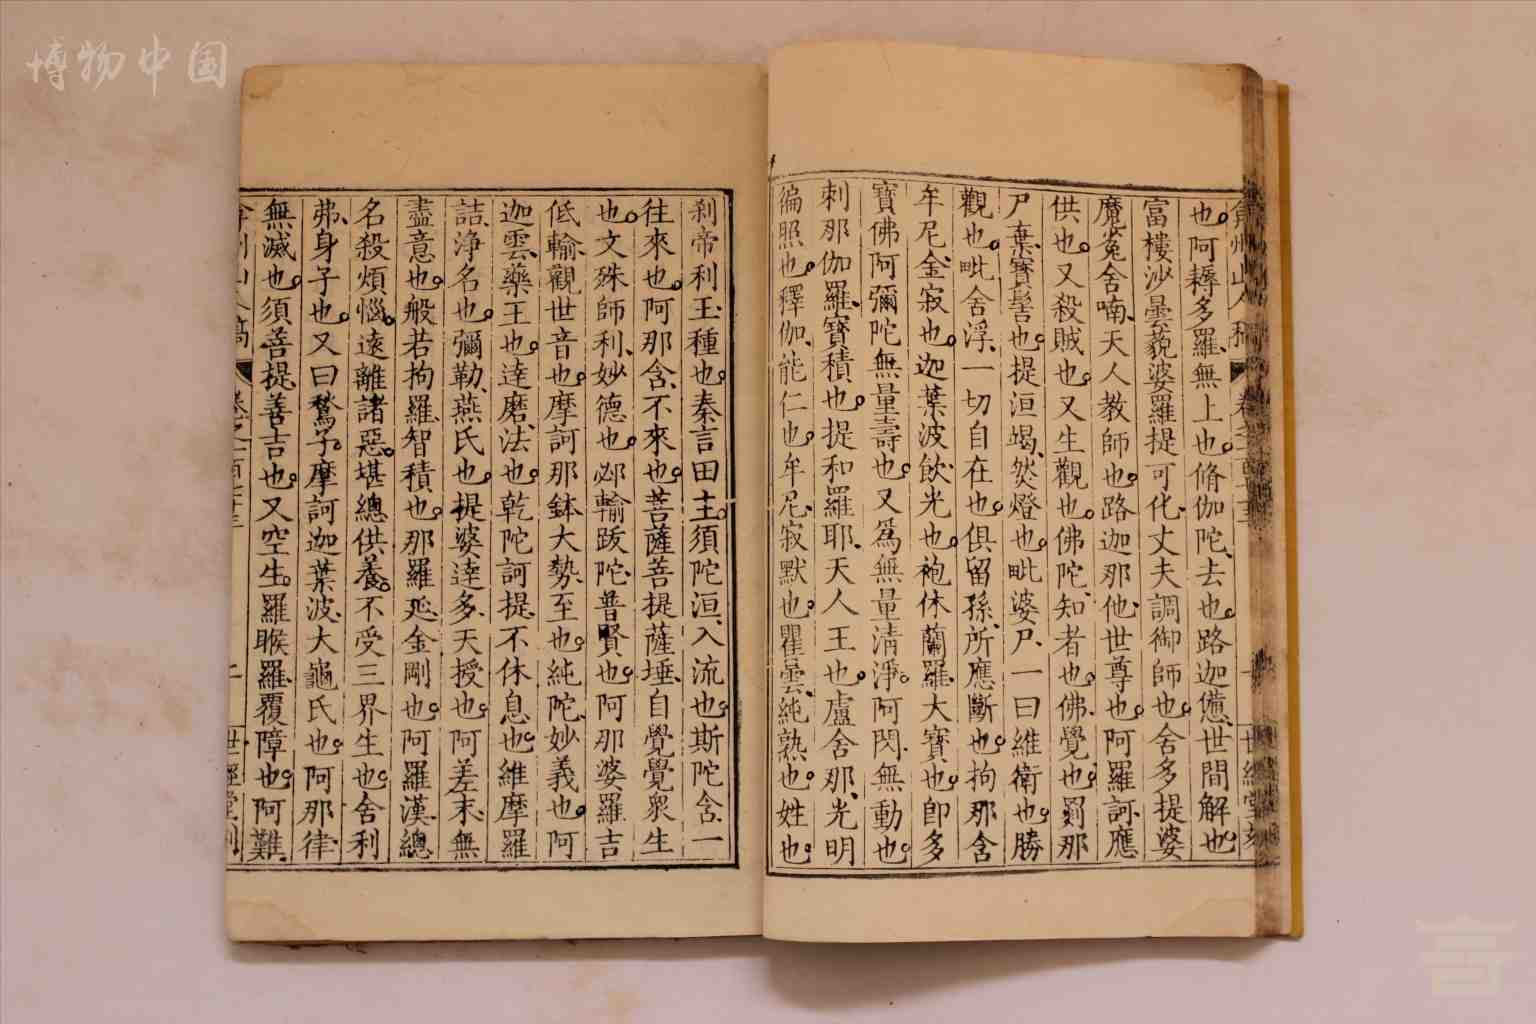 博物中国
也阿耨多羅無上也脩伽陀去也路迦憊世間解也
富樓沙曇藐婆羅提可化丈夫調御師也舍多提婆
魔㝹舍喃天人教師也路迦那他世尊也阿羅訶應
供也又殺賊也又生觀也佛陀知者也佛覺也罽那
尸棄寳髻也提洹竭然燈也毗婆尸一曰維衛也勝
觀也毗舍浮一切自在也俱留孫所應斷也拘那含
牟尼金寂也迦葉波飲光也袍休蘭羅大寶也卽多
寶佛阿彌陀無量壽也又爲無量清淨阿閦無動也
刺那伽羅寶積也提和羅耶天人王也盧舍那光明
徧照也釋伽能仁也牟尼寂默也瞿曇純熟也姓也
刹帝利王種也秦言田主須陀洹入流也斯陀含一
往來也阿那含不來也菩薩菩提薩埵自覺覺衆生
也文殊師利妙德也邲輸跋陀普賢也阿那婆羅吉
低輸觀世音也摩訶那鉢大勢至也純陀妙義也阿
迦雲藥王也達磨法也乾陀訶提不休息也維摩羅
詰淨名也彌勒燕氏也提婆達多天授也阿差末無
盡意也般若拘羅智積也那羅延金剛也阿羅漢總
名殺煩惱遠離諸惡堪總供養不受三界生也舍利
弗身子也又曰鶖子摩訶迦葉波大龜氏也阿那律
無滅也須菩提善吉也又空生羅睺羅覆障也阿難